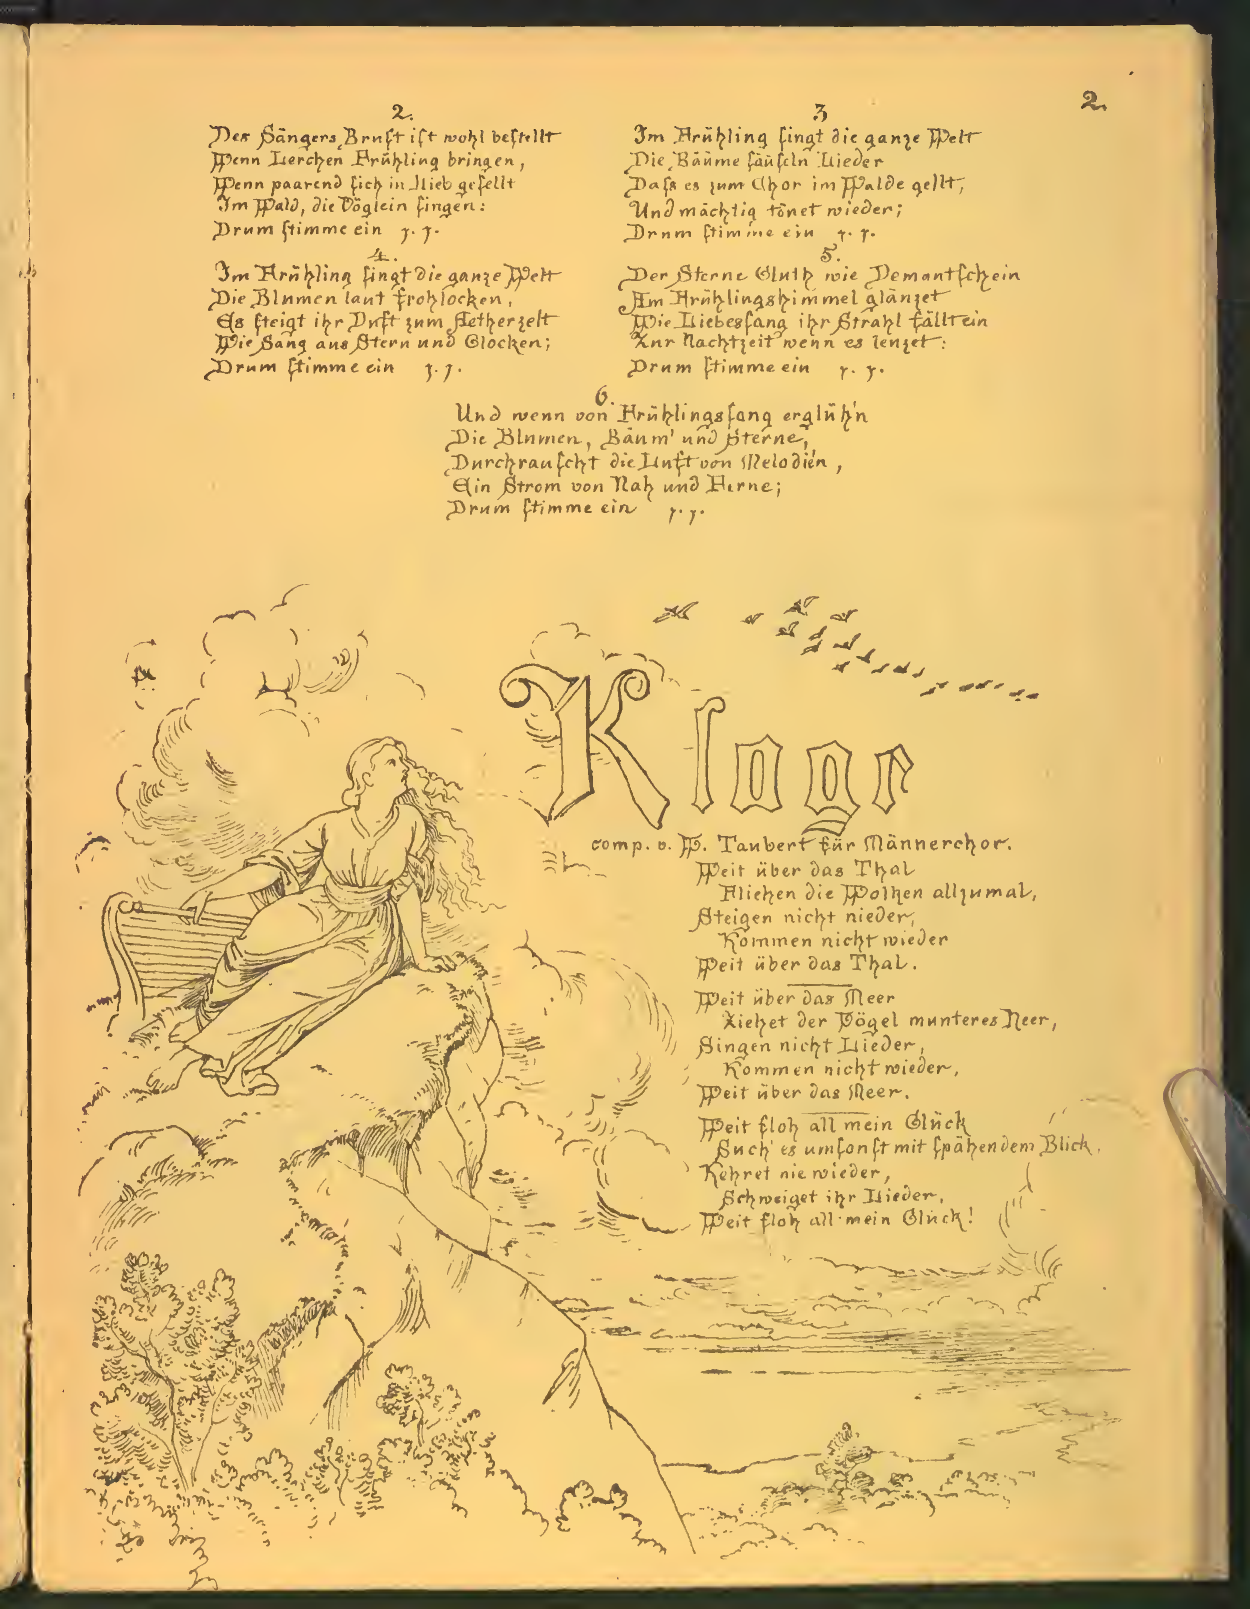 2.
2.
Des Sängers Brust ist wohl bestellt
Wenn Lerchen Frühling bringen,
Wenn paarend sich in Lieb gesellt
Im Wald, die Vöglein singen:
Drum stimme ein
3
Im Frühling singt die ganze Welt
Die Bäume säuseln Lieder
Dass es zum Chor im Walde gellt,
Und mächtig tönet wieder;
Drum stimme ein
4.
Im Frühling singt die ganze Welt
Die Blumen laut frohlocken,
Es steigt ihr Duft zum Aetherzelt
Wie Sang aus Stern und Glocken;
Drum stimme ein
5.
Der Sterne Gluth wie Demantschein
Am Frühlingshimmel glänzet
Wie Liebessang ihr Strahl fällt ein
Zur Nachtzeit wenn es lenzet:
Drum stimme ein
6.
Und wenn von Frühlingssang erglüh'n
Die Blumen, Bäum' und Sterne,
Durchrauscht die Luft von Melodien,
Ein Strom von Nah und Ferne;
Drum stimme ein
Klage
comp. v. W. Taubert für Männerchor.
Weit über das Thal
Fliehen die Wolken allzumal,
Steigen nicht nieder,
Kommen nicht wieder
Weit über das Thal.
Weit über das Meer
Ziehet der Vögel munteres Heer,
Singen nicht Lieder,
Kommen nicht wieder,
Weit über das Meer.
Weit floh all mein Glück
Such' es umsonst mit spähendem Blick.
Kehret nie wieder,
Schweiget ihr Lieder,
Weit floh all mein Glück!